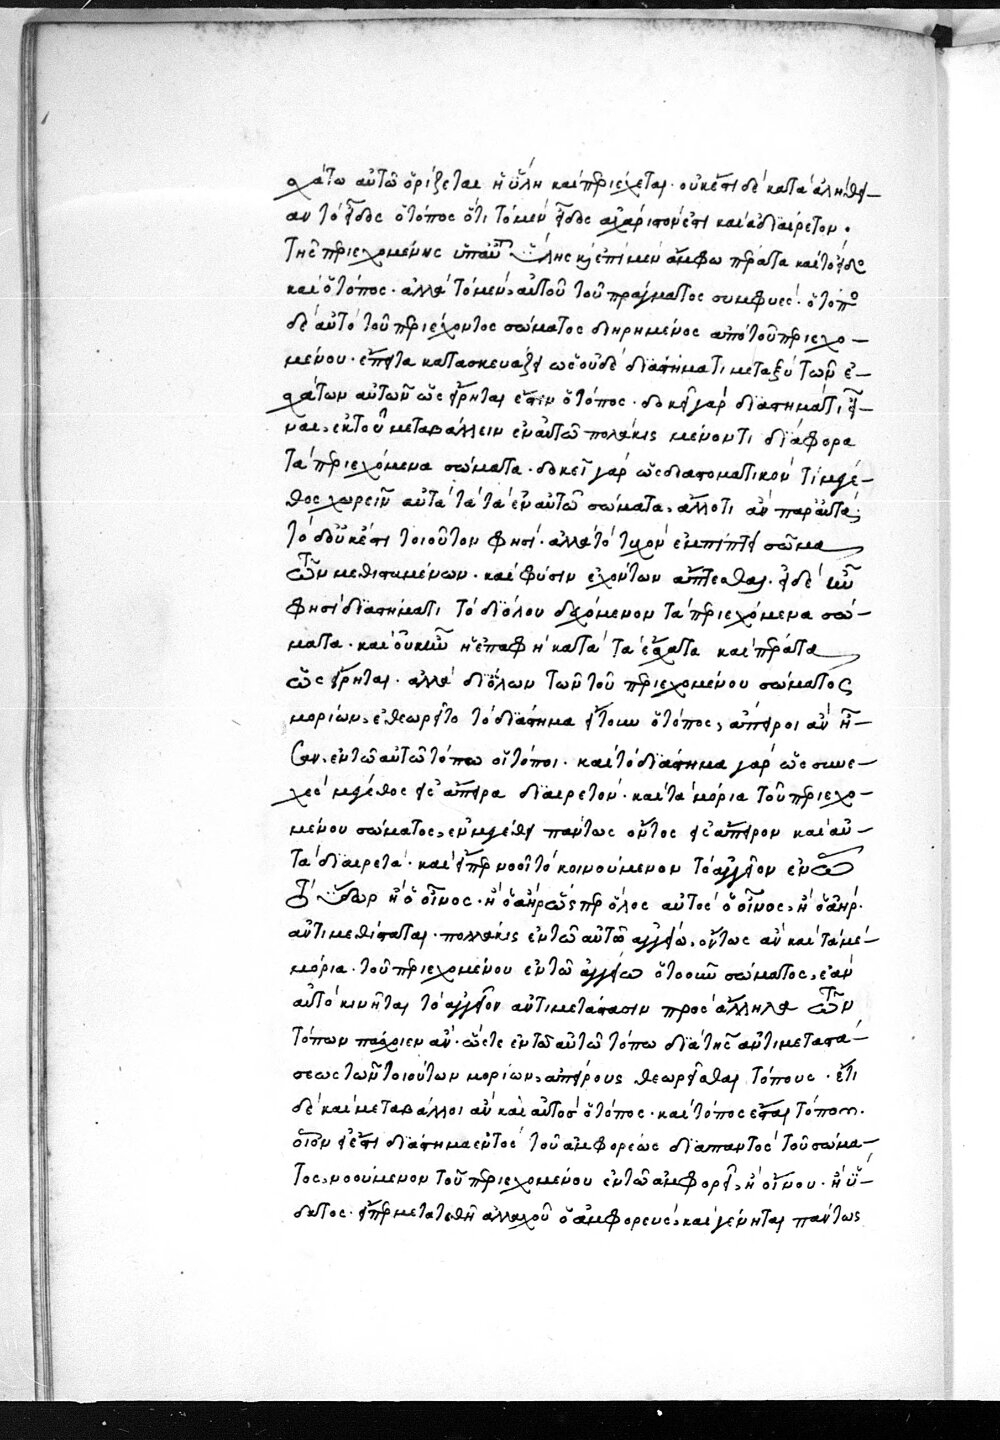 χάτω αὐτῶ ὁρίζεται ἡ ὕλη καὶ περιέχεται· οὐκέτι δὲ κατὰ ἀλήθει-
αν τὸ εἶδος ὁ τόπος ὅτι τὸ μὲν εἶδος ἀχώριστόν ἐστι καὶ ἀδιαίρετον·
τῆς περιεχομένης ὑπ' αὐτοῦ ὕλης καὶ ἐστὶ μὲν ἄμφω πέρατα καὶ τὸ εἶδος
καὶ ὁ τόπος· ἀλλὰ τὸ μὲν, αὐτοῦ τοῦ πράγματος συμφυές· ὁ τόπος
δὲ αὐτὸ τοῦ περιέχοντος σώματος διῃρημένος ἀπὸ τοῦ περιεχο-
μένου· ἔπειτα κατασκευάζει ὡς οὐδὲ διάστημά τι μεταξὺ τῶν ἐ-
χάτων αὐτῶν ὡς εἴρηται ἔστιν ὁ τόπος· δοκεῖ γὰρ διάστημά τι εἶ-
ναι, ἐκ τοῦ μεταβάλλειν ἐν αὐτῶ πολλάκις μένοντι διάφορα
τὰ περιεχόμενα σώματα· δοκεῖ γὰρ ὡς διαστηματικόν τι μέγε-
θος χωρεῖν αὐτὰ τὰ ἐν αὐτῶ σώματα, ἄλλό τι ἂν παρ' αὐτά·
τὸ δ' οὐκ ἔστι τοιοῦτον φησί· ἀλλὰ τὸ τυχὸν ἐμπίπτει σῶμα
τῶν μεθισταμένων· καὶ φύσιν ἐχόντων ἅπτεσθαι· εἰ δὲ ἦν
φησὶ διάστημά τι τὸ διόλου δεχόμενον τὰ περιεχόμενα σώ-
ματα· καὶ οὐκ ἦν ἡ ἐπαφὴ κατὰ τὰ ἔσχατα καὶ πέρατα
ὡς εἴρηται· ἀλλὰ δι' ὅλων τῶν τοῦ περιεχομένου σώματος
μορίων, ἐθεωρεῖτο τὸ διάστημα ἤτοι ὁ τόπος, ἄπειροι ἂν ἦ-
σαν, ἐν τῶ αὐτῶ τόπω οἱ τόποι· καὶ τὸ διάστημα γὰρ ὡς συνε-
χὲς μέγεθος εἰς ἄπειρα διαιρετόν· καὶ τὰ μόρια τοῦ περιεχο-
μένου σώματος, ἐν μεγέθει πάντως ὄντος εἰς ἄπειρον καὶ αὐ-
τὰ διαιρετά· καὶ εἴπερ νοοῖτο κινούμενον τὸ ἀγγεῖον ἐν ὧ
τὸ ὕδωρ ἢ ὁ οἶνος· ἢ ὁ ἀὴρ ὥσπερ ὅλος αὐτὸς ὁ οἶνος, ἢ ὁ ἀήρ·
ἀντιμεθίσταται· πολλάκις ἐν τῶ αὐτῶ ἀγγείω, οὕτως ἂν καὶ τὰ μέ-
μόρια· τοῦ περιεχομένου ἐν τῶ ἀγγείω ὁτουοῦν σώματος, ἐὰν
αὐτὸ κινῆται τὸ ἀγγεῖον ἀντιμετάστασιν πρὸς ἄλληλα τῶν
τόπων πάσχοιεν ἄν· ὥστε ἐν τῶ αὐτῶ τόπω διὰ τῆς ἀντιμεταστά-
σεως τῶν τοιούτων μορίων, ἀπείρους θεωρεῖσθαι τόπους· ἔτι
δὲ καὶ μεταβάλλοι ἂν καὶ αὐτὸς ὁ τόπος· καὶ τόπος ἔσται τόπου·
οἷον εἰ ἔστι διάστημα ἐντὸς τοῦ ἀμφορέως διαπαντὸς τοῦ σώμα-
τος, νοούμενον τοῦ περιεχομένου ἐν τῶ ἀμφορεῖ, ἢ οἴνου· ἢ ὕ-
δατος· εἴπερ μετατεθῆ ἀλλαχοῦ ὁ ἀμφορεύς, καὶ γένηται πάντως